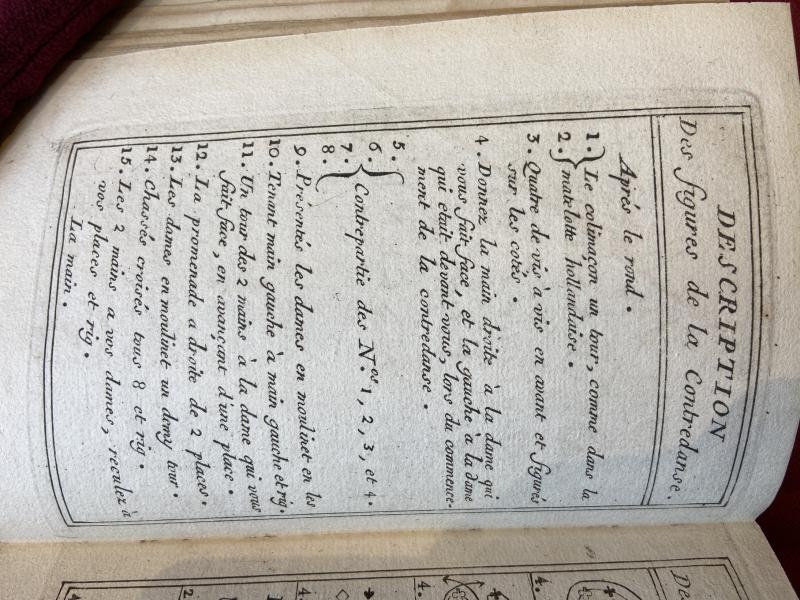 DESCRIPTION
Des figures de la Contredanse.
Aprés le rond.
1. } Le colimaçon un tour, comme dans la
2. } matelotte hollandaise.
3. Quatre de vis à vis en avant et figurés
sur les cotés.
4. Donnez la main droite à la dame qui
vous fait face, et la gauche à la dame
qui etait devant vous, lors du commence-
ment de la contredanse.
5.
6. { Contrepartie des N.os 1, 2, 3, et 4.
7.
8.
9. Présentés les dames en moulinet en les
10. Tenant main gauche à main gauche et rig.
11. Un tour des 2 mains à la dame qui vous
fait face, en avançant d'une place.
12. La promenade a droite de 2 places.
13. Les dames en moulinet un demy tour.
14. Chassés croisés tous 8 et rig.
15. Les 2 mains a vos dames, reculez à
vos places et rig.
La main.
De
4.
4.
4.
2